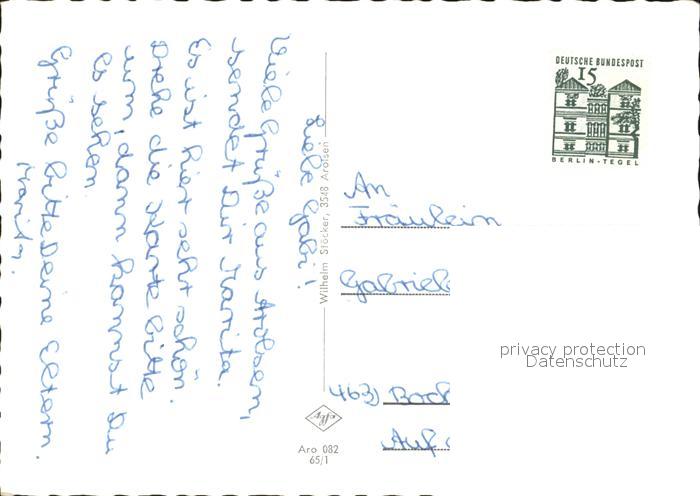 Liebe Gabi!
Viele Grüße aus Arolsen,
sendet Dir Marita.
Es ist hier sehr schön.
Drehe die Karte bitte
um, dann kannst Du
es sehen.
Grüße bitte Deine Eltern.
Marita.
Wilhelm Stöcker, 3548 Arolsen
Agfa
Aro 082
65/1
DEUTSCHE BUNDESPOST
15
BERLIN-TEGEL
An
Fräulein
Gabriele
463) Boch
Auf
privacy protection
Datenschutz